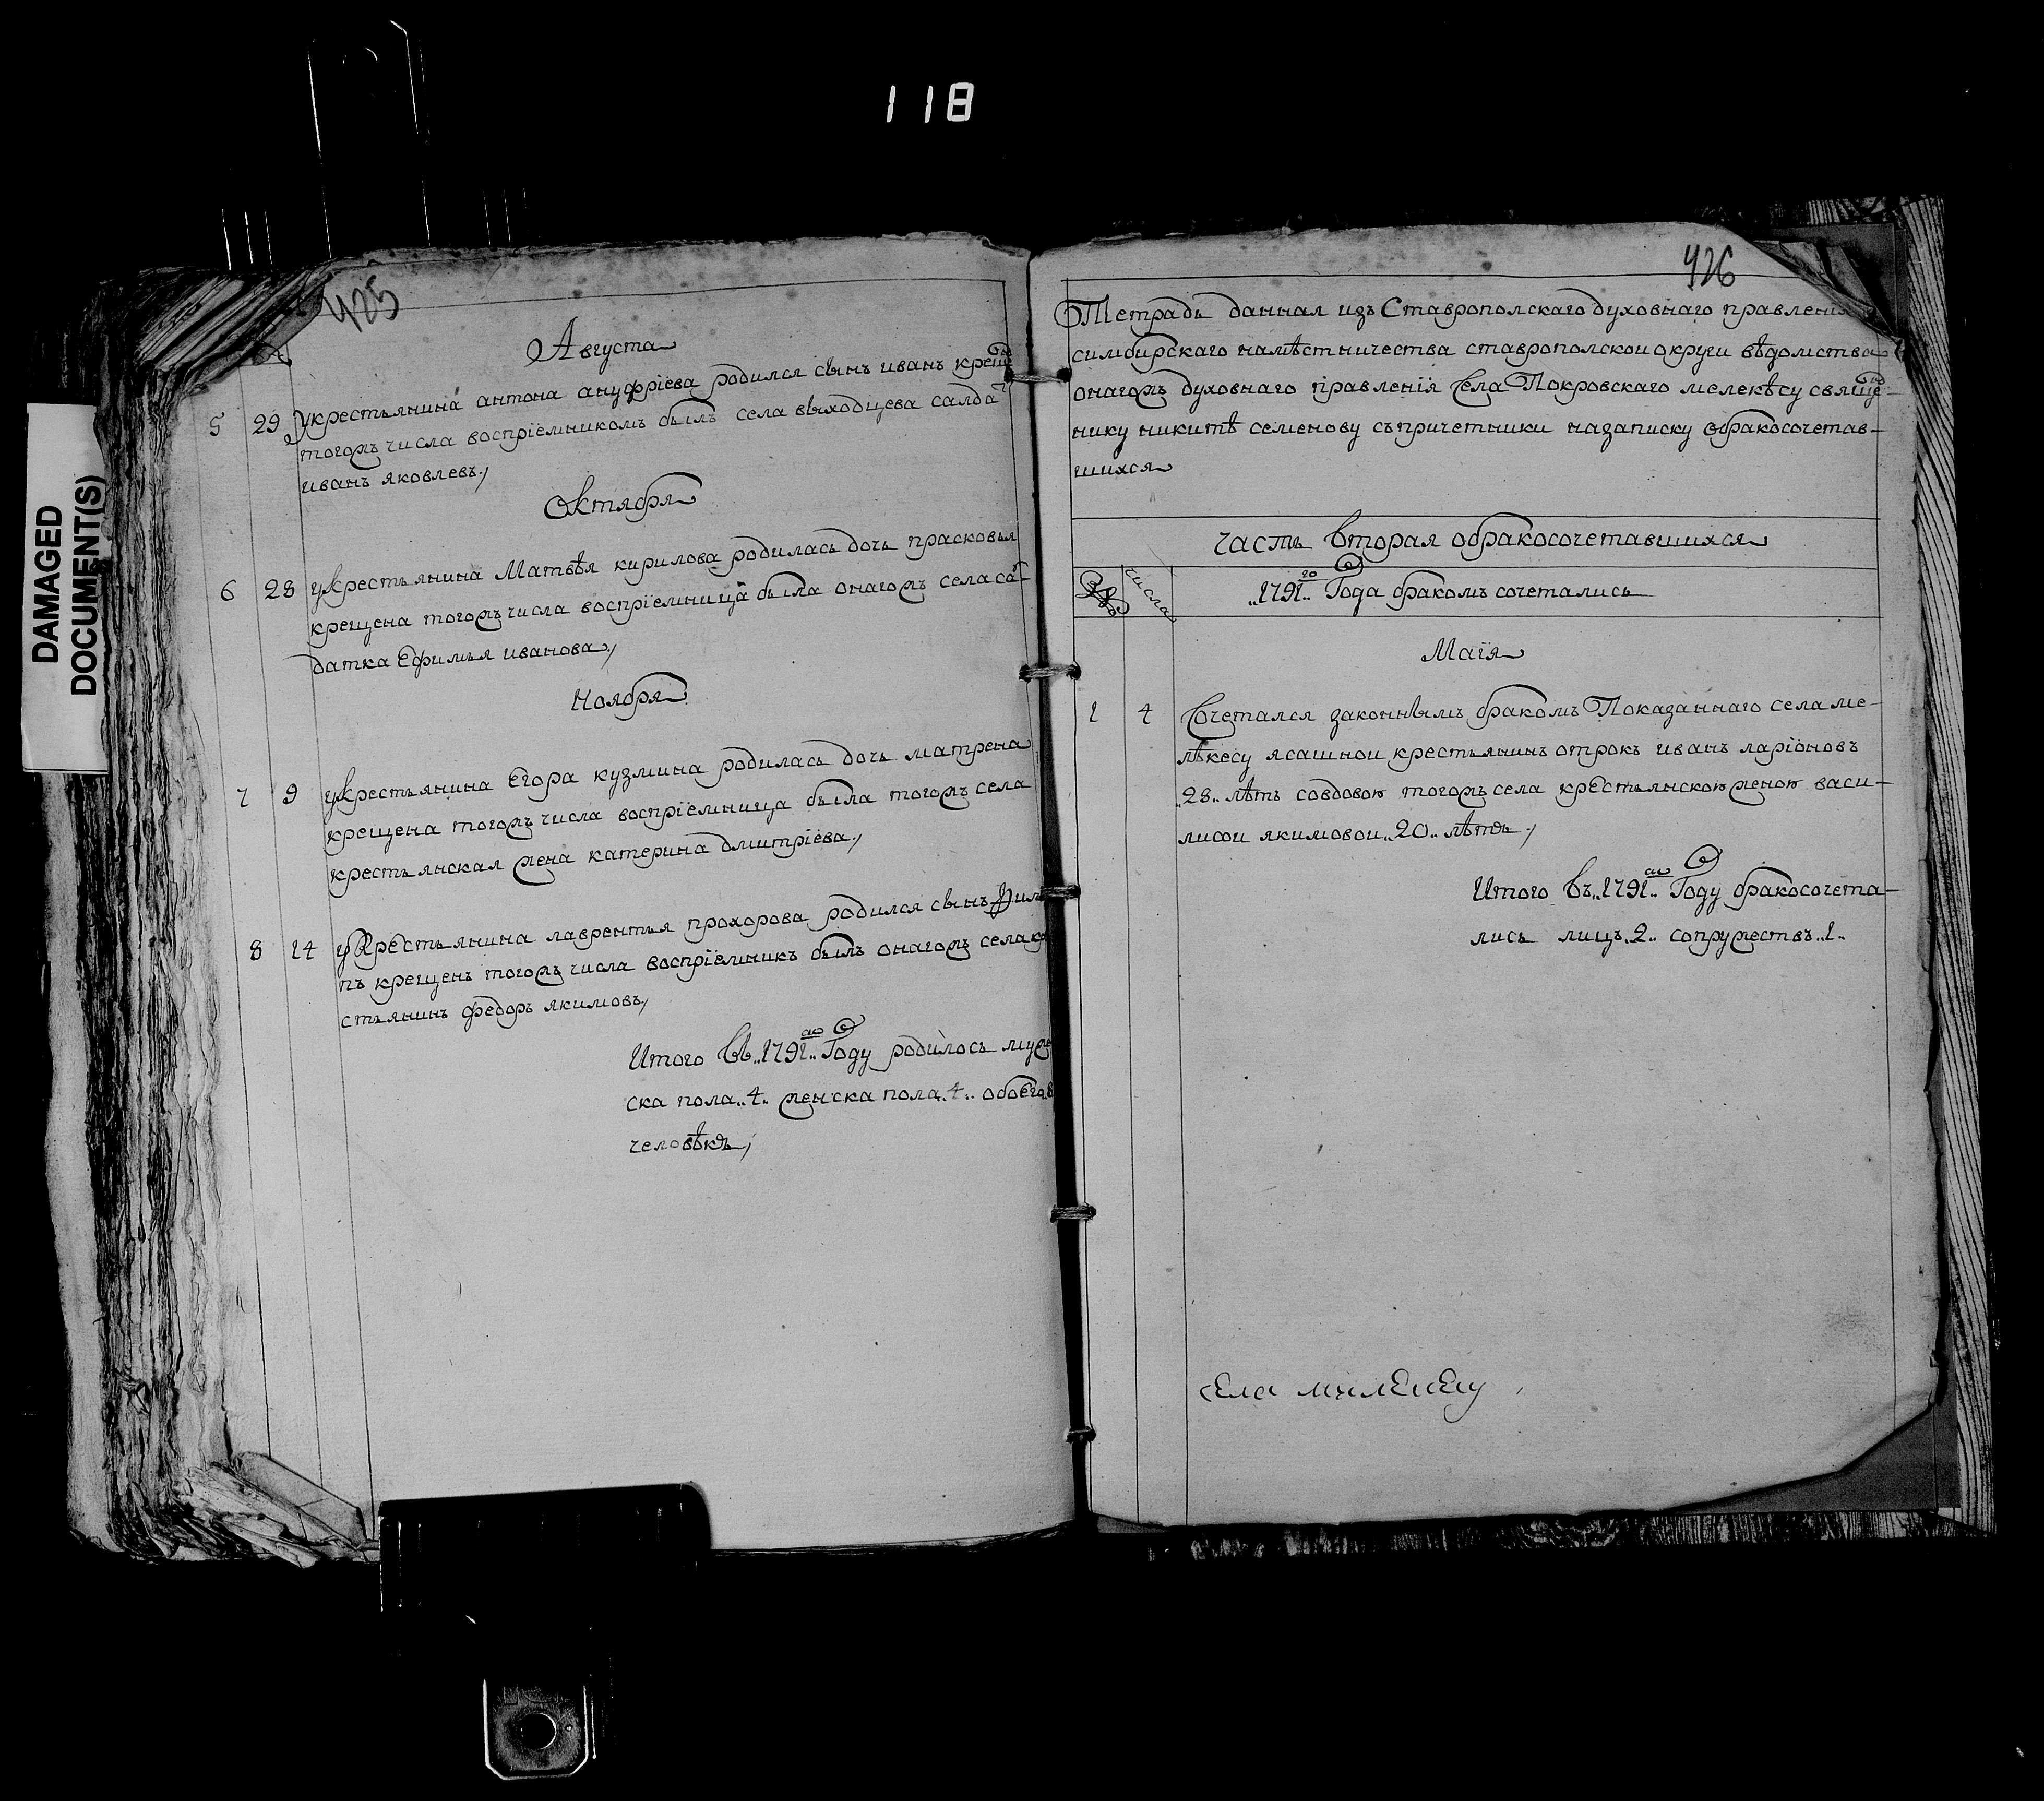 118
DAMAGED
DOCUMENT(S)
425
Августа
5 29 укрестьянина антона ануфріева родился сынъ иванъ крещенъ
тогожъ числа воспріемникомъ былъ села выходцева салдатъ
иванъ яковлевъ,
Октября
6 28 укрестьянина Матвѣя кирилова родилась дочь прасковья
крещена тогожъ числа воспріемница была онагожъ села сал-
датка Ефимья иванова,
Ноября
7 9 укрестьянина Егора кузмина родилась дочь матрена
крещена тогожъ числа воспріемница была тогожъ села
крестьянская жена катерина дмитріева,
8 14 укрестьянина лаврентья прохорова родился сынъ Фили
пъ крещенъ тогожъ числа воспріемникъ былъ онагожъ села кре
стьянинъ федоръ якимовъ,
Итого въ 1791 Году родилось муже
ска пола 4 женска пола 4 обоего 8
человѣкъ,
426
Тетрадь данная изъ Ставрополскаго духовнаго правления
симбирскаго намѣстничества ставрополской округи вѣдомства
онагожъ духовнаго правленія Села Покровскаго мелекѣсу свяще-
нику никитѣ семенову съпричетники назаписку обракосочетав-
шихся
часть вторая обракосочетавшихся
числа
1791 го Года бракомъ сочетались
Маїя
1 4 Сочетался законнымъ бракомъ Показаннаго села ме-
лѣкесу ясашной крестьянинъ отрокъ иванъ ларіоновъ
28 лѣтъ совдовою тогожъ села крестьянскою женою васи-
лисой якимовой 20 лѣтъ,
Итого въ 1791 Году бракосочета-
лись лицъ 2 сопружествъ 1
села